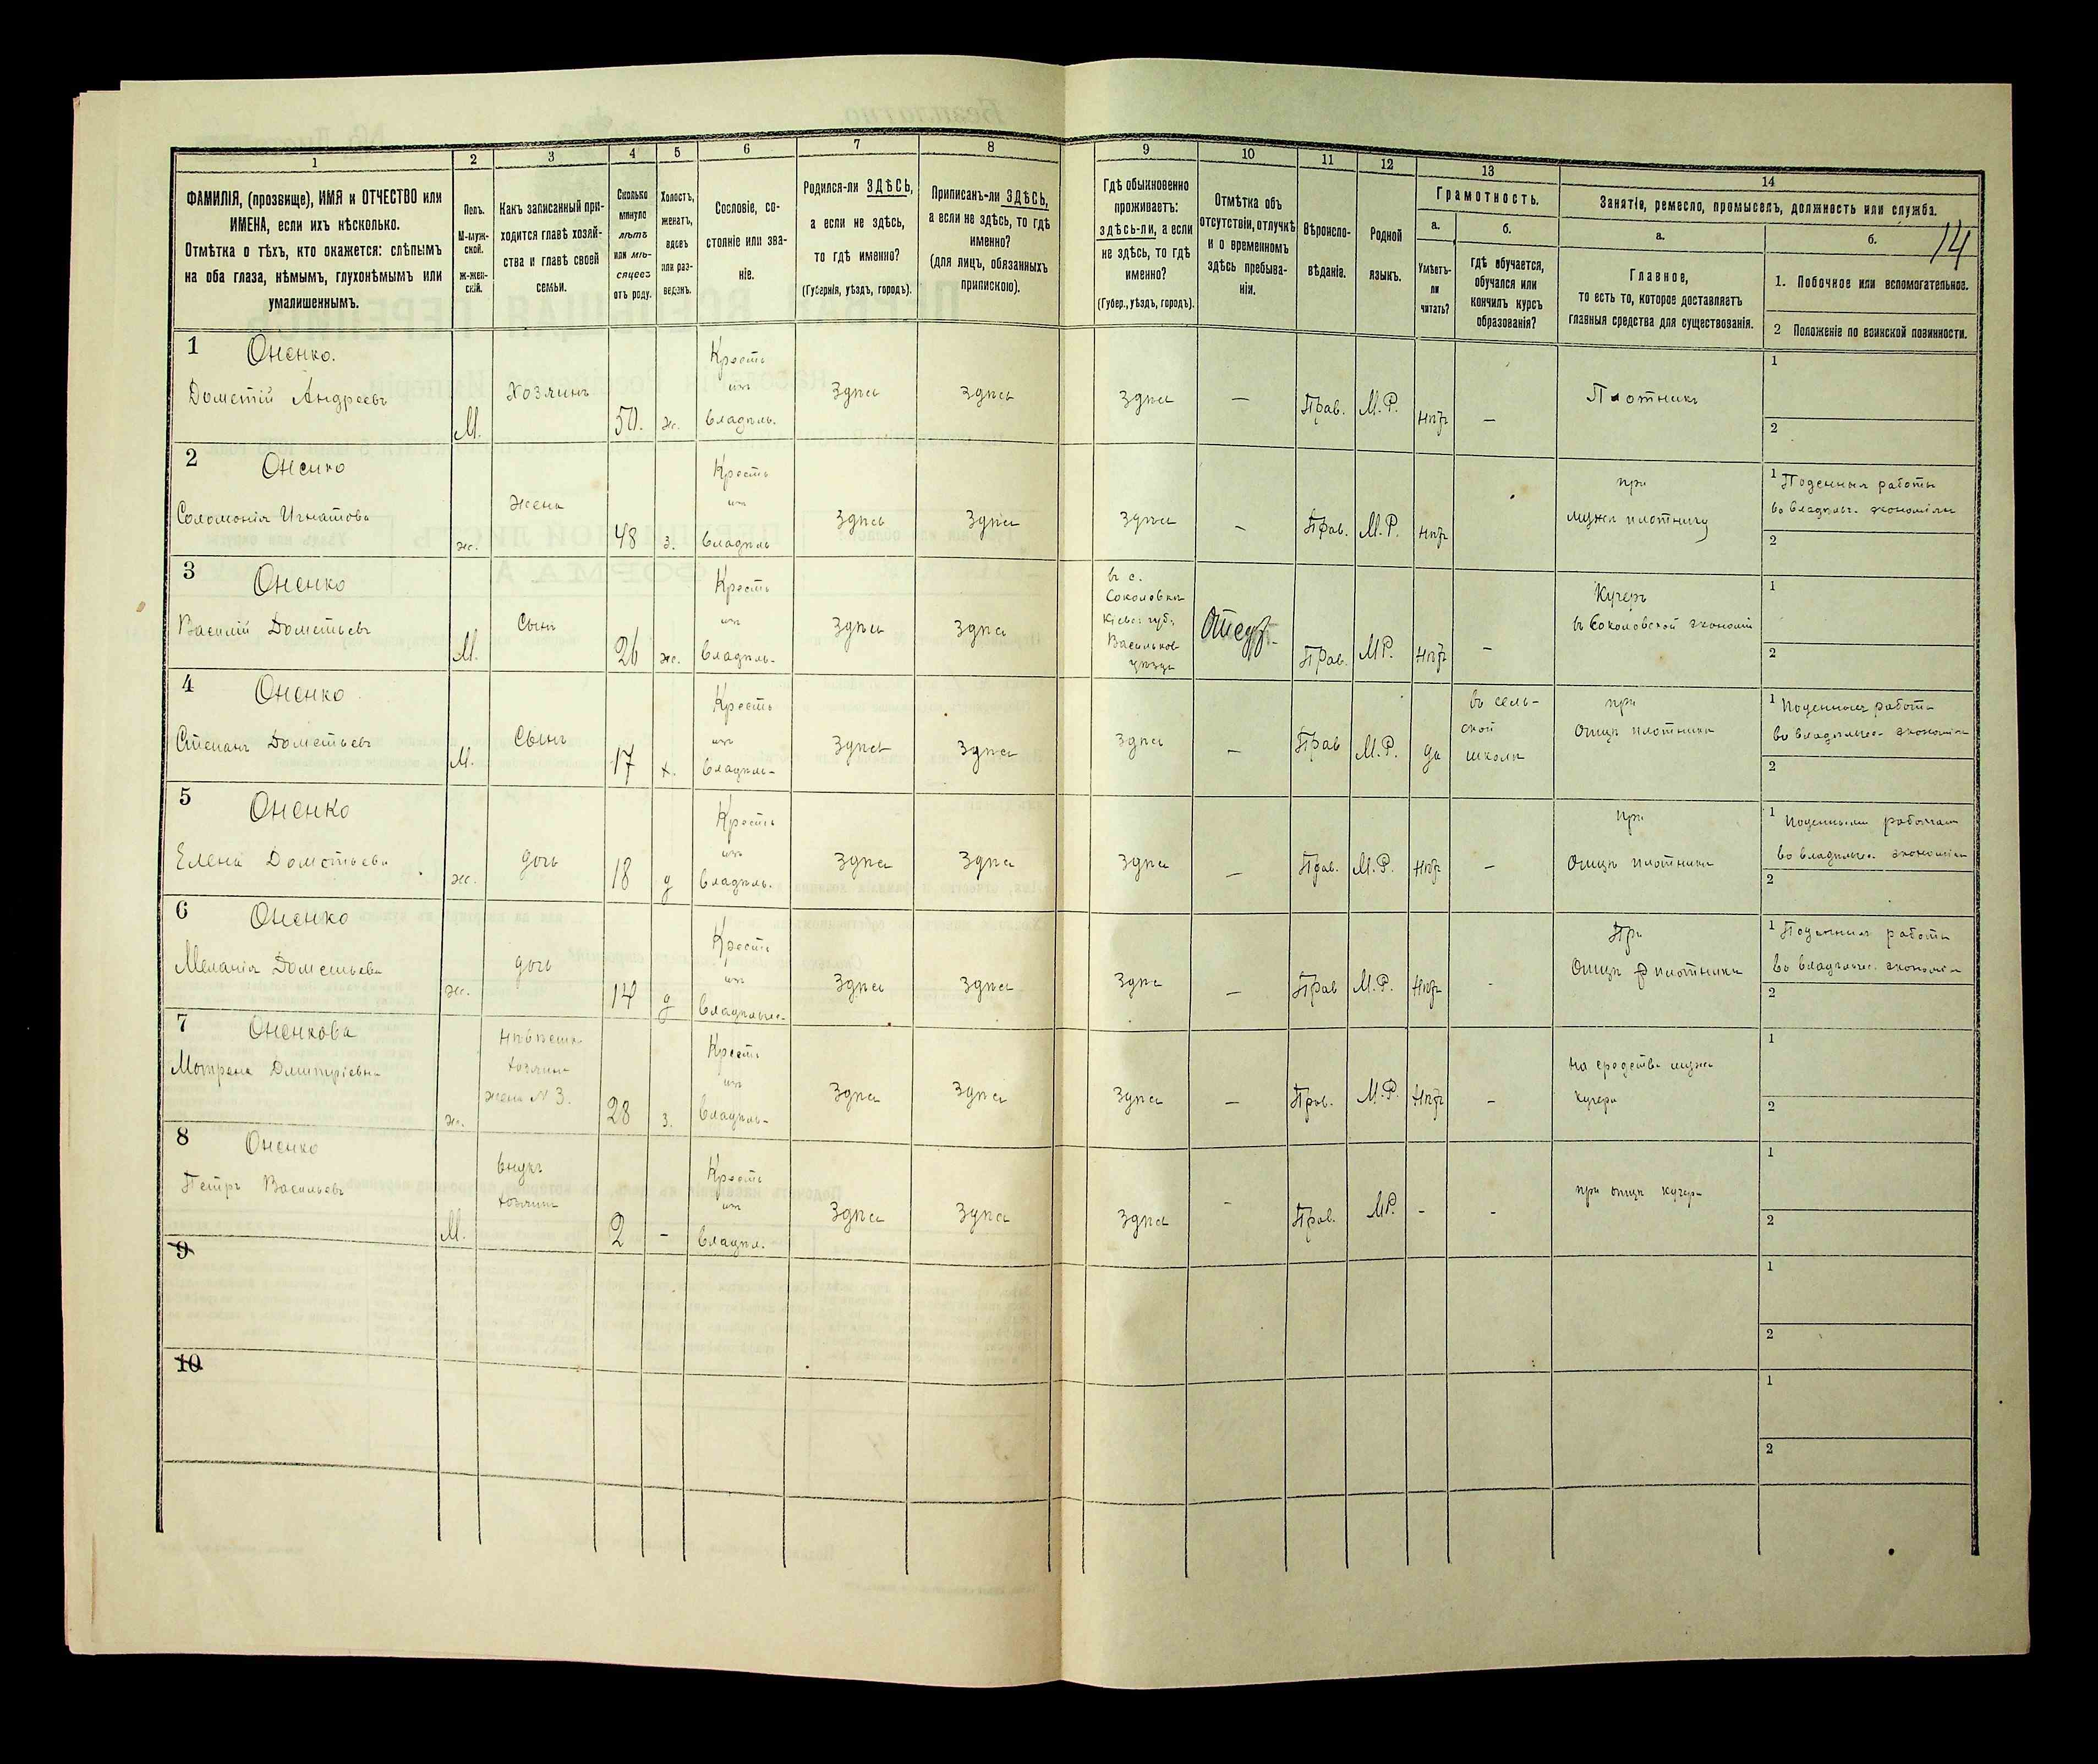 14
1
2
3
4
5
6
7
8
9
10
11
12
13
14
ФАМИЛІЯ, (прозвище), ИМЯ и ОТЧЕСТВО или
ИМЕНА, если ихъ нѣсколько.
Отмѣтка о тѣхъ, кто окажется: слѣпымъ
на оба глаза, нѣмымъ, глухонѣмымъ или
умалишеннымъ.
Полъ.
М-муж-
ской.
ж-жен-
скій.
Какъ записанный при-
ходится главѣ хозяй-
ства и главѣ своей
семьи.
Сколько
минуло
лѣтъ
или мѣ-
сяцевъ
отъ роду.
Холостъ,
женатъ,
вдовъ
или раз-
веденъ.
Сословіе, со-
стояніе или зва-
ніе.
Родился-ли ЗДѢСЬ,
а если не здѣсь,
то гдѣ именно?
(Губернія, уѣздъ, городъ).
Приписанъ-ли ЗДѢСЬ,
а если не здѣсь, то гдѣ
именно?
(для лицъ, обязанныхъ
припискою).
Гдѣ обыкновенно
проживаетъ:
здѣсь-ли, а если
не здѣсь, то гдѣ
именно?
(Губер., уѣздъ, городъ).
Отмѣтка объ
отсутствіи, отлучкѣ
и о временномъ
здѣсь пребыва-
ніи.
Вѣроиспо-
вѣданіе.
Родной
языкъ.
Грамотность.
а.
Умѣетъ-
ли
читать?
б.
гдѣ обучается,
обучался или
кончилъ курсъ
образованія?
Занятіе, ремесло, промыселъ, должность или служба.
а.
Главное,
то есть то, которое доставляетъ
главныя средства для существованія.
б.
1. Побочное или вспомогательное.
2 Положеніе по воинской повинности.
1 Оненко.
Дометій Андреевъ
М.
Хозяинъ
50.
ж.
Крестъ
изъ
владѣль.
Здѣсь
Здѣсь
Здѣсь
—
Прав.
М.Р.
Нѣтъ
—
Плотникъ
1
2
2 Оненко
Соломонія Игнатова
ж.
Жена
48
з.
Крестъ
изъ
владѣль
Здѣсь
Здѣсь
Здѣсь
—
Прав.
М.Р.
Нѣтъ
при
мужѣ плотнику
1 Поденныя работы
во владѣльч. экономіи
2
3 Оненко
Василій Дометьевъ
М.
Сынъ
26
ж.
Крестъ
изъ
владѣль-
Здѣсь
Здѣсь
въ с.
Соколовкѣ
Кіевс. губ.
Васильков
уѣзда
Отсут.
Прав.
МР.
Нѣтъ
—
Кучеръ
въ Соколовской экономіи
1
2
4 Оненко
Степанъ Дометьевъ
М.
Сынъ
17
х.
Крестъ
изъ
владѣль-
Здѣсь
Здѣсь
Здѣсь
—
Прав
М.Р.
да
въ сель-
ской
школѣ
при
Отцѣ плотника
1 Поденныя работы
во владѣльчес. экономіи
2
5 Оненко
Елена Дометьева
ж.
дочь
18
д
Крестъ
изъ
владѣль.
Здѣсь
Здѣсь
Здѣсь
—
Прав.
М.Р.
Нѣтъ
—
при
Отцѣ плотника
1 поденными работами
во владѣльчес. экономіи
2
6 Оненко
Меланія Дометьева
ж.
дочь
14
д
Крестъ
изъ
владѣльчес-
Здѣсь
Здѣсь
Здѣсь
—
Прав
М.Р.
Нѣтъ
-
При
Отцѣ плотника
1 Поденныя работы
во владѣльчес. экономіи
2
7 Оненкова
Мотрена Дмитріевна
ж.
Невѣстка
хозяина
жена N 3.
28
з.
Крестъ
изъ
владѣль-
Здѣсь
Здѣсь
Здѣсь
—
Прав.
М.Р.
Нѣтъ
—
на средства мужа
кучера
1
2
8 Оненко
Петръ Васильевъ
М.
внукъ
хозяина
2
-
Крестъ
изъ
владѣл.
Здѣсь
Здѣсь
Здѣсь
-
Прав.
МР.
-
-
при отцѣ кучера
1
2
9
1
2
10
1
2